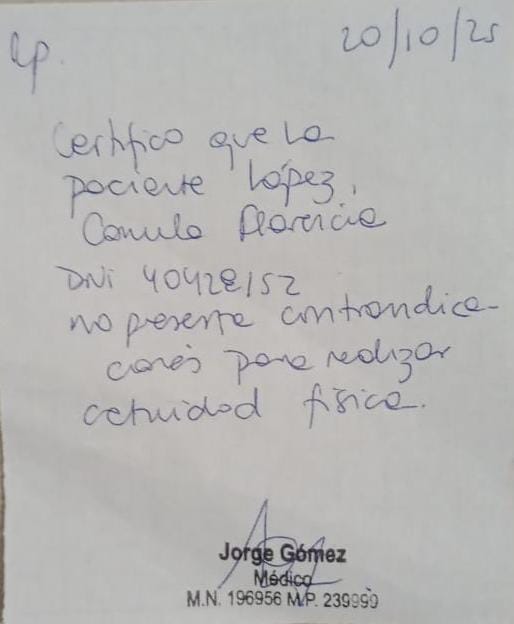 Rp.
20/10/25
Certifico que la
paciente López,
Camila Florencia
DNI 40428152
no presenta contraindica-
ciones para realizar
actividad física.
Jorge Gómez
Médico
M.N. 196956 M.P. 239999